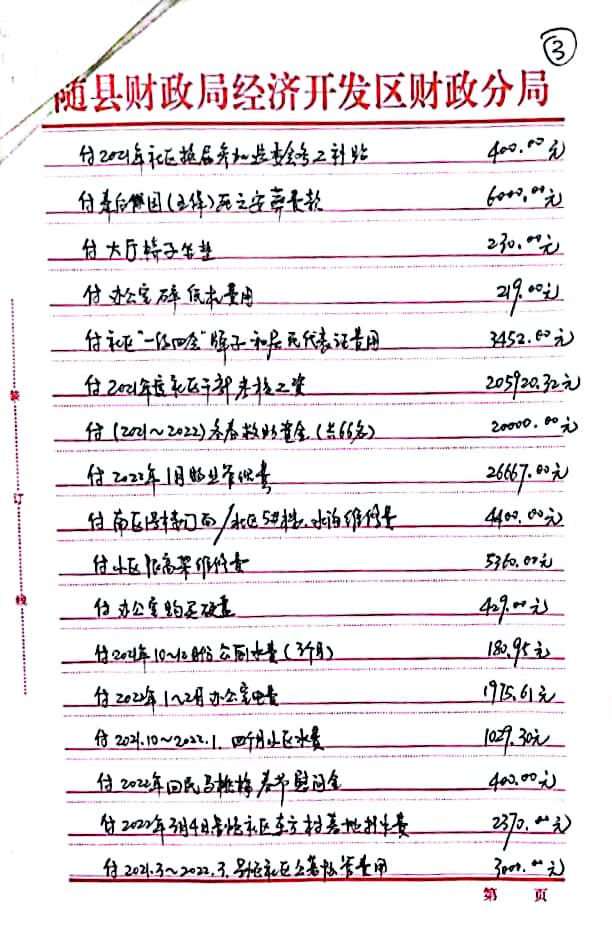 ③
随县财政局经济开发区财政分局
付2021年社区换届参加监委会务工补贴 400.00元
付 死亡安葬费款 6000.00元
付大厅椅子坐垫 230.00元
付办公室碎纸机费用 219.00元
付社区 牌子和居民代表证费用 3452.00元
付2021年度社区干部考核工资 205920.32元
付(2021~2022)冬春救助资金(共66名) 20000.00元
付2022年1月物业管理费 26667.00元
付南区 / 社区5#楼、水沟维修费 4400.00元
付小区限高架维修费 5360.00元
付办公室购买硬盘 429.00元
付2021年10~12月份公厕水费(3个月) 180.95元
付2022年1~2月办公室电费 1975.61元
付2021.10~2022.1.四个月小区水费 1029.30元
付2022年回民 春节慰问金 400.00元
付2022年3月4日 社区东方村墓地 费 2370.00元
付2021.3~2022.3. 社区公墓 管费用 3000.00元
装
订
线
第 页